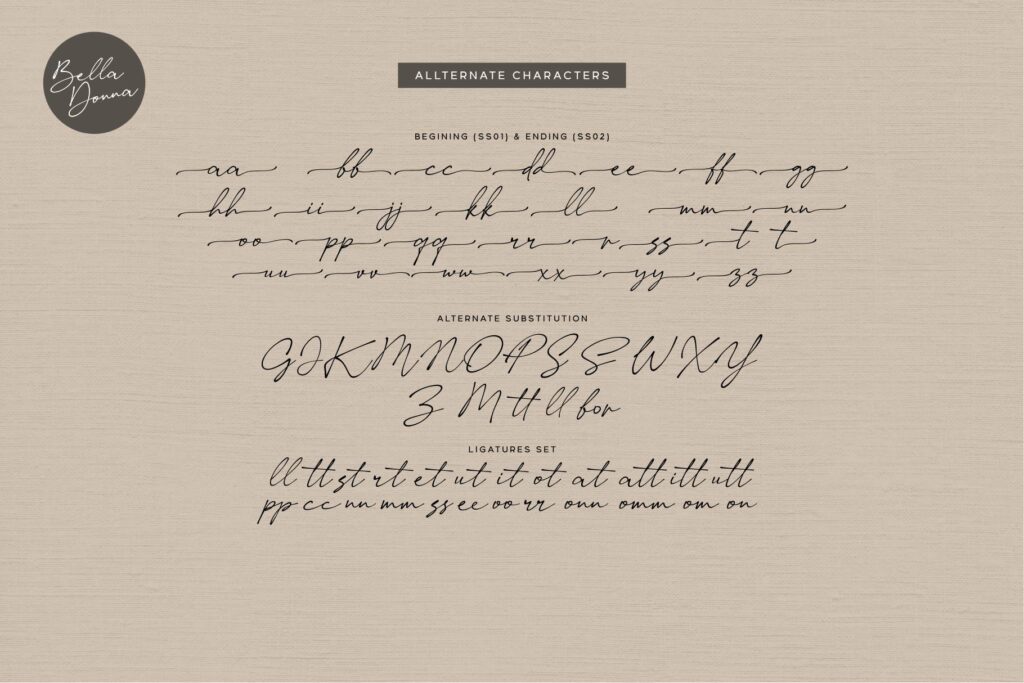 Bella
Donna
ALLTERNATE CHARACTERS
BEGINING (SS01) & ENDING (SS02)
aa bb cc dd ee ff gg
hh ii jj kk ll mm nn
oo pp qq rr r ss t t
uu vv ww xx yy zz
ALTERNATE SUBSTITUTION
G I K M N O P S S W X Y
Z M tt ll for
LIGATURES SET
ll tt st rt et ut it ot at att itt utt
pp cc nn mm ss ee oo rr onn omm om on